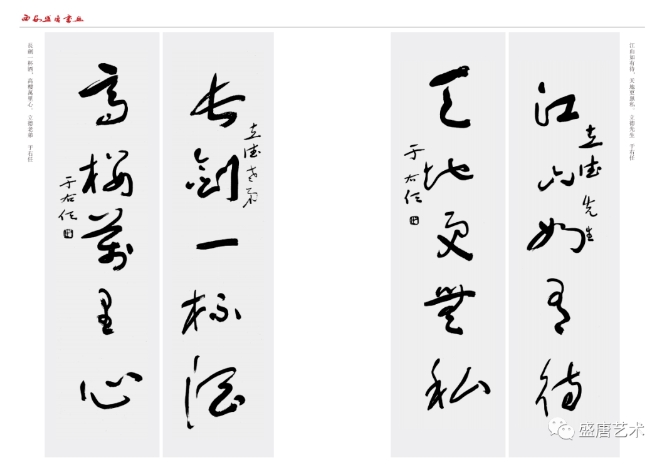 江山如有待，天地更無私。立德先生 于右任
江山如有待
立德先生
天地更無私
于右任
長劍一杯酒
立德老弟
高樓萬里心
于右任
長劍一杯酒，高樓萬里心。立德老弟 于右任
盛唐艺术